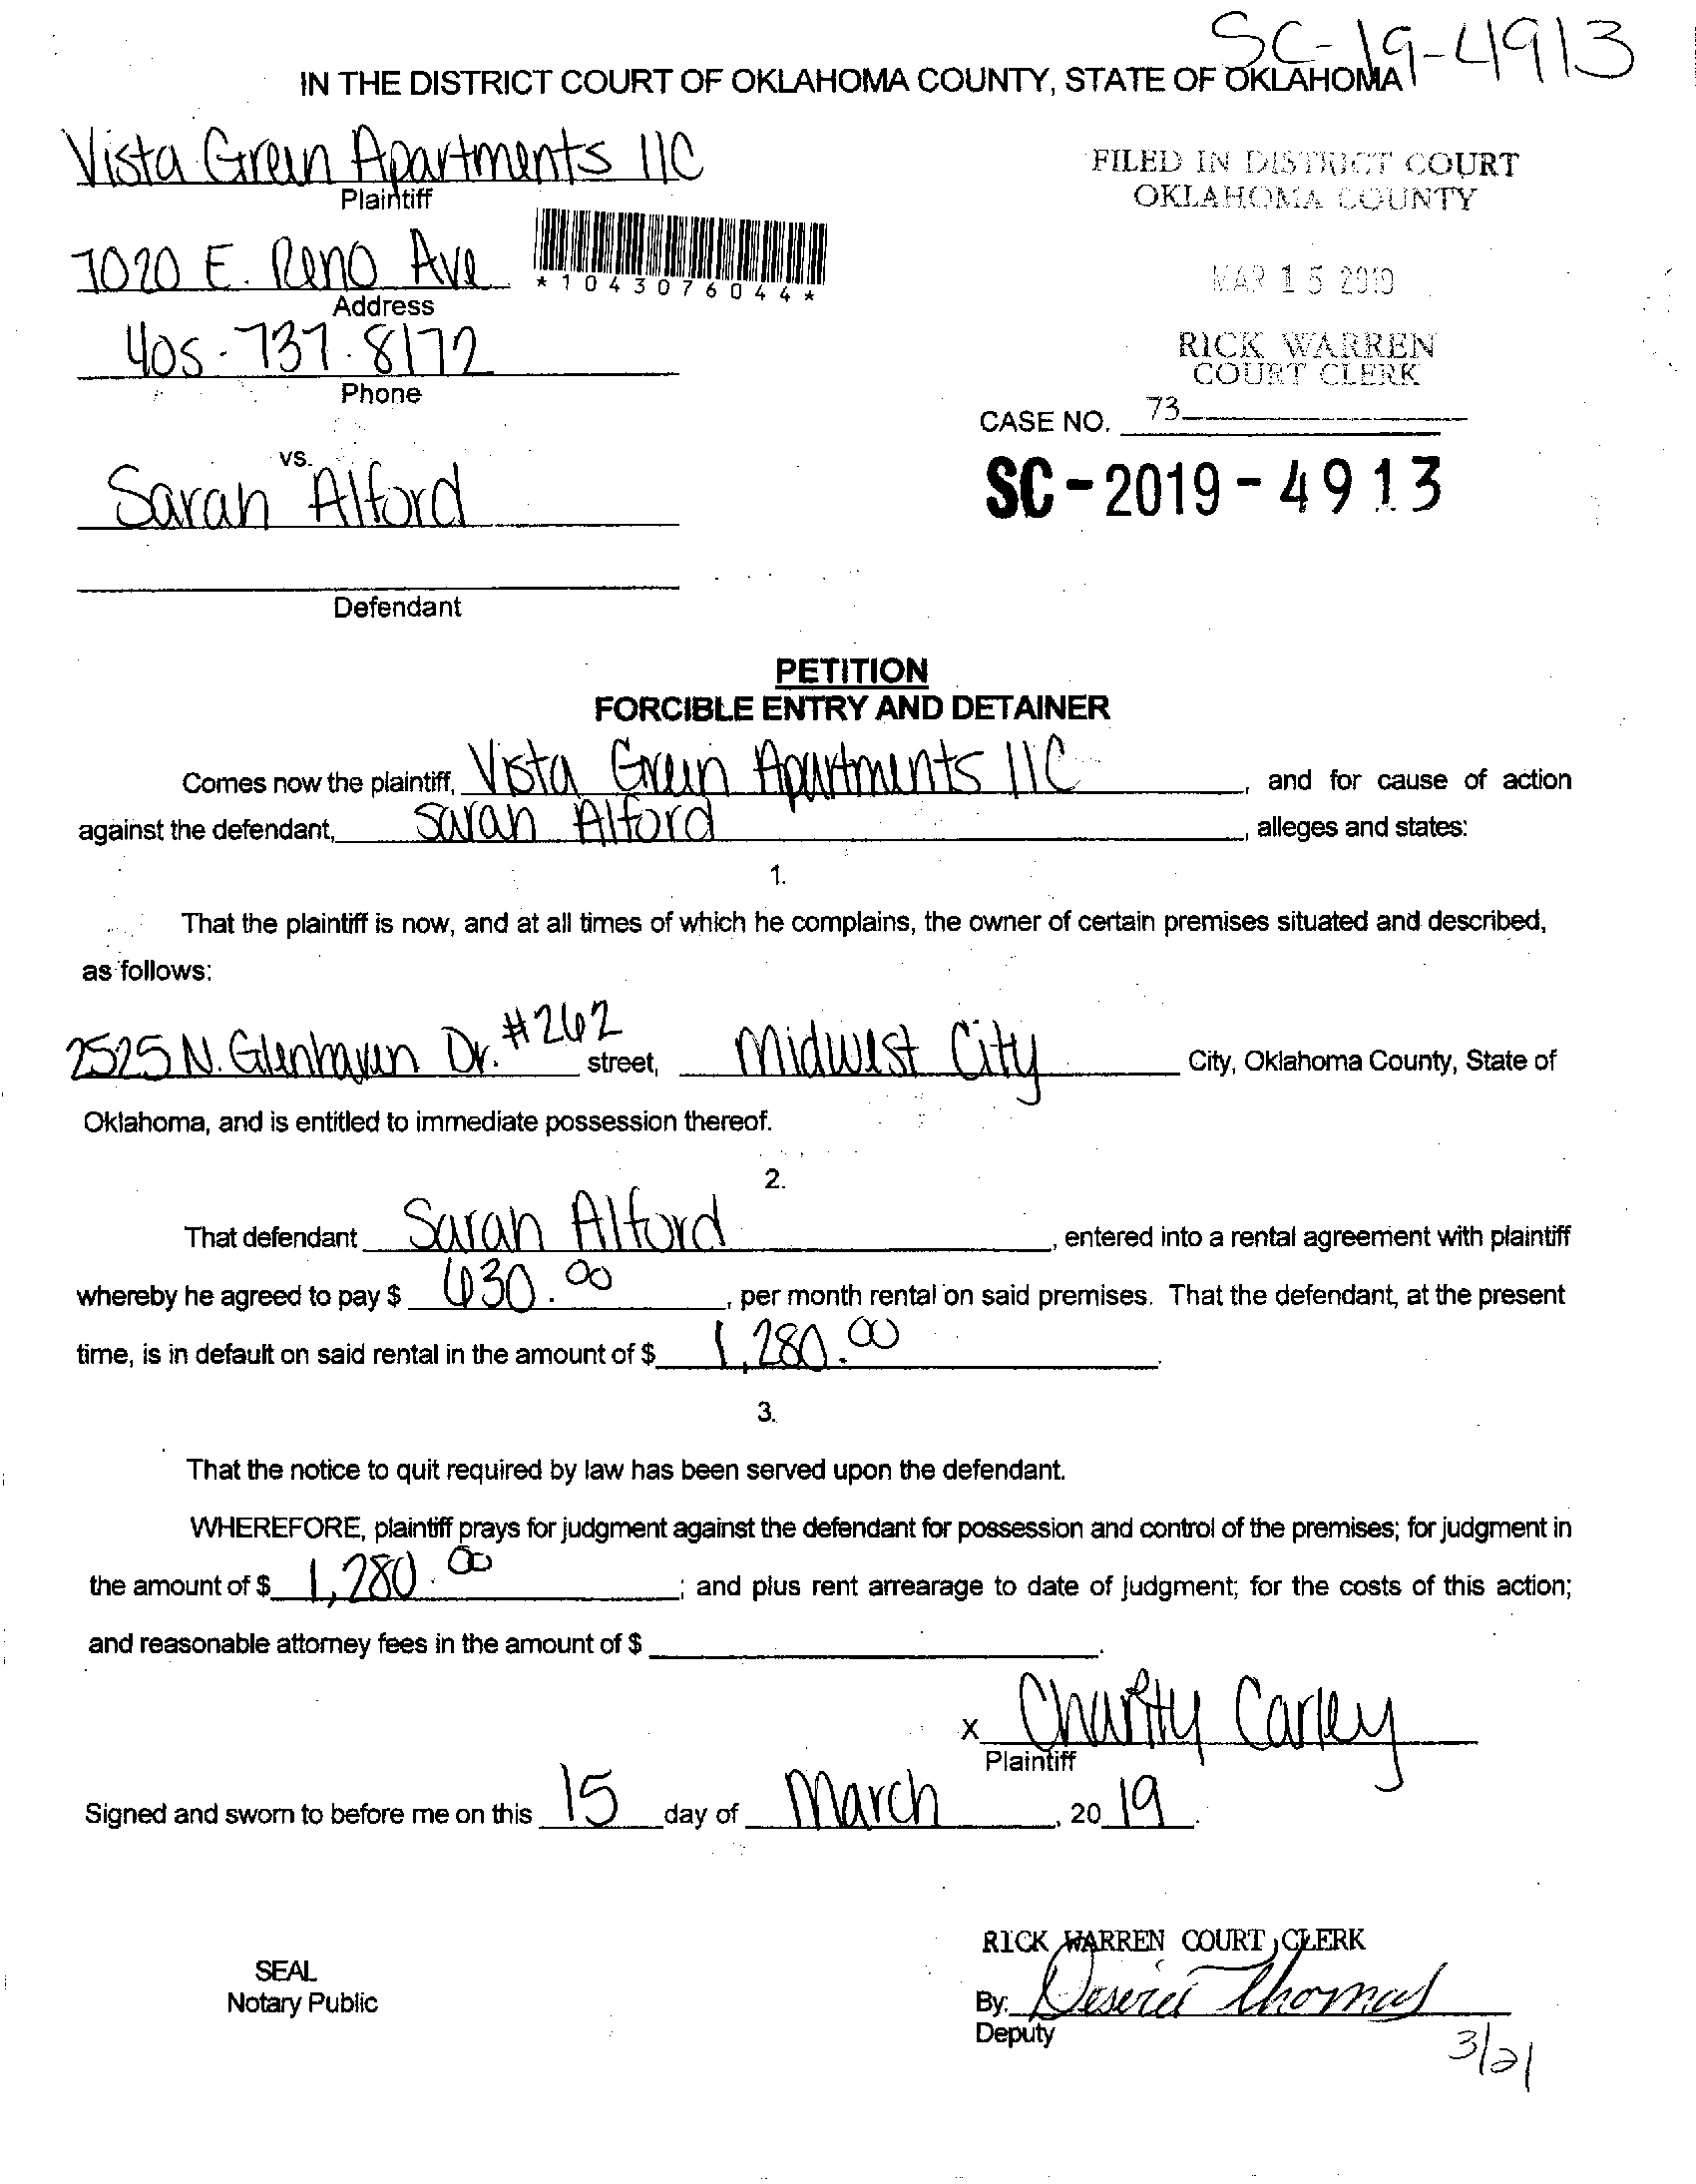 SC-19-4913
IN THE DISTRICT COURT OF OKLAHOMA COUNTY, STATE OF OKLAHOMA
Vista Green Apartments llC
Plaintiff
FILED IN DISTRICT COURT
OKLAHOMA COUNTY
7020 E. Reno Ave
Address
*1043076044*
MAR 15 2019
405-737-8172
Phone
RICK WARREN
COURT CLERK
CASE NO. 73
vs.
Sarah Alford
SC-2019-4913
Defendant
PETITION
FORCIBLE ENTRY AND DETAINER
Comes now the plaintiff, Vista Green Apartments llC, and for cause of action
against the defendant, Sarah Alford, alleges and states:
1.
That the plaintiff is now, and at all times of which he complains, the owner of certain premises situated and described,
as follows:
2525 N. Glenhaven Dr. #262 street, Midwest City City, Oklahoma County, State of
Oklahoma, and is entitled to immediate possession thereof.
2.
That defendant Sarah Alford, entered into a rental agreement with plaintiff
whereby he agreed to pay $ 630.00, per month rental on said premises. That the defendant, at the present
time, is in default on said rental in the amount of $ 1,280.00.
3.
That the notice to quit required by law has been served upon the defendant.
WHEREFORE, plaintiff prays for judgment against the defendant for possession and control of the premises; for judgment in
the amount of $ 1,280.00; and plus rent arrearage to date of judgment; for the costs of this action;
and reasonable attorney fees in the amount of $ .
x Charity Carley
Plaintiff
Signed and sworn to before me on this 15 day of March, 2019.
RICK WARREN COURT CLERK
SEAL
Notary Public
By: Deseree Thomas
Deputy
3/21